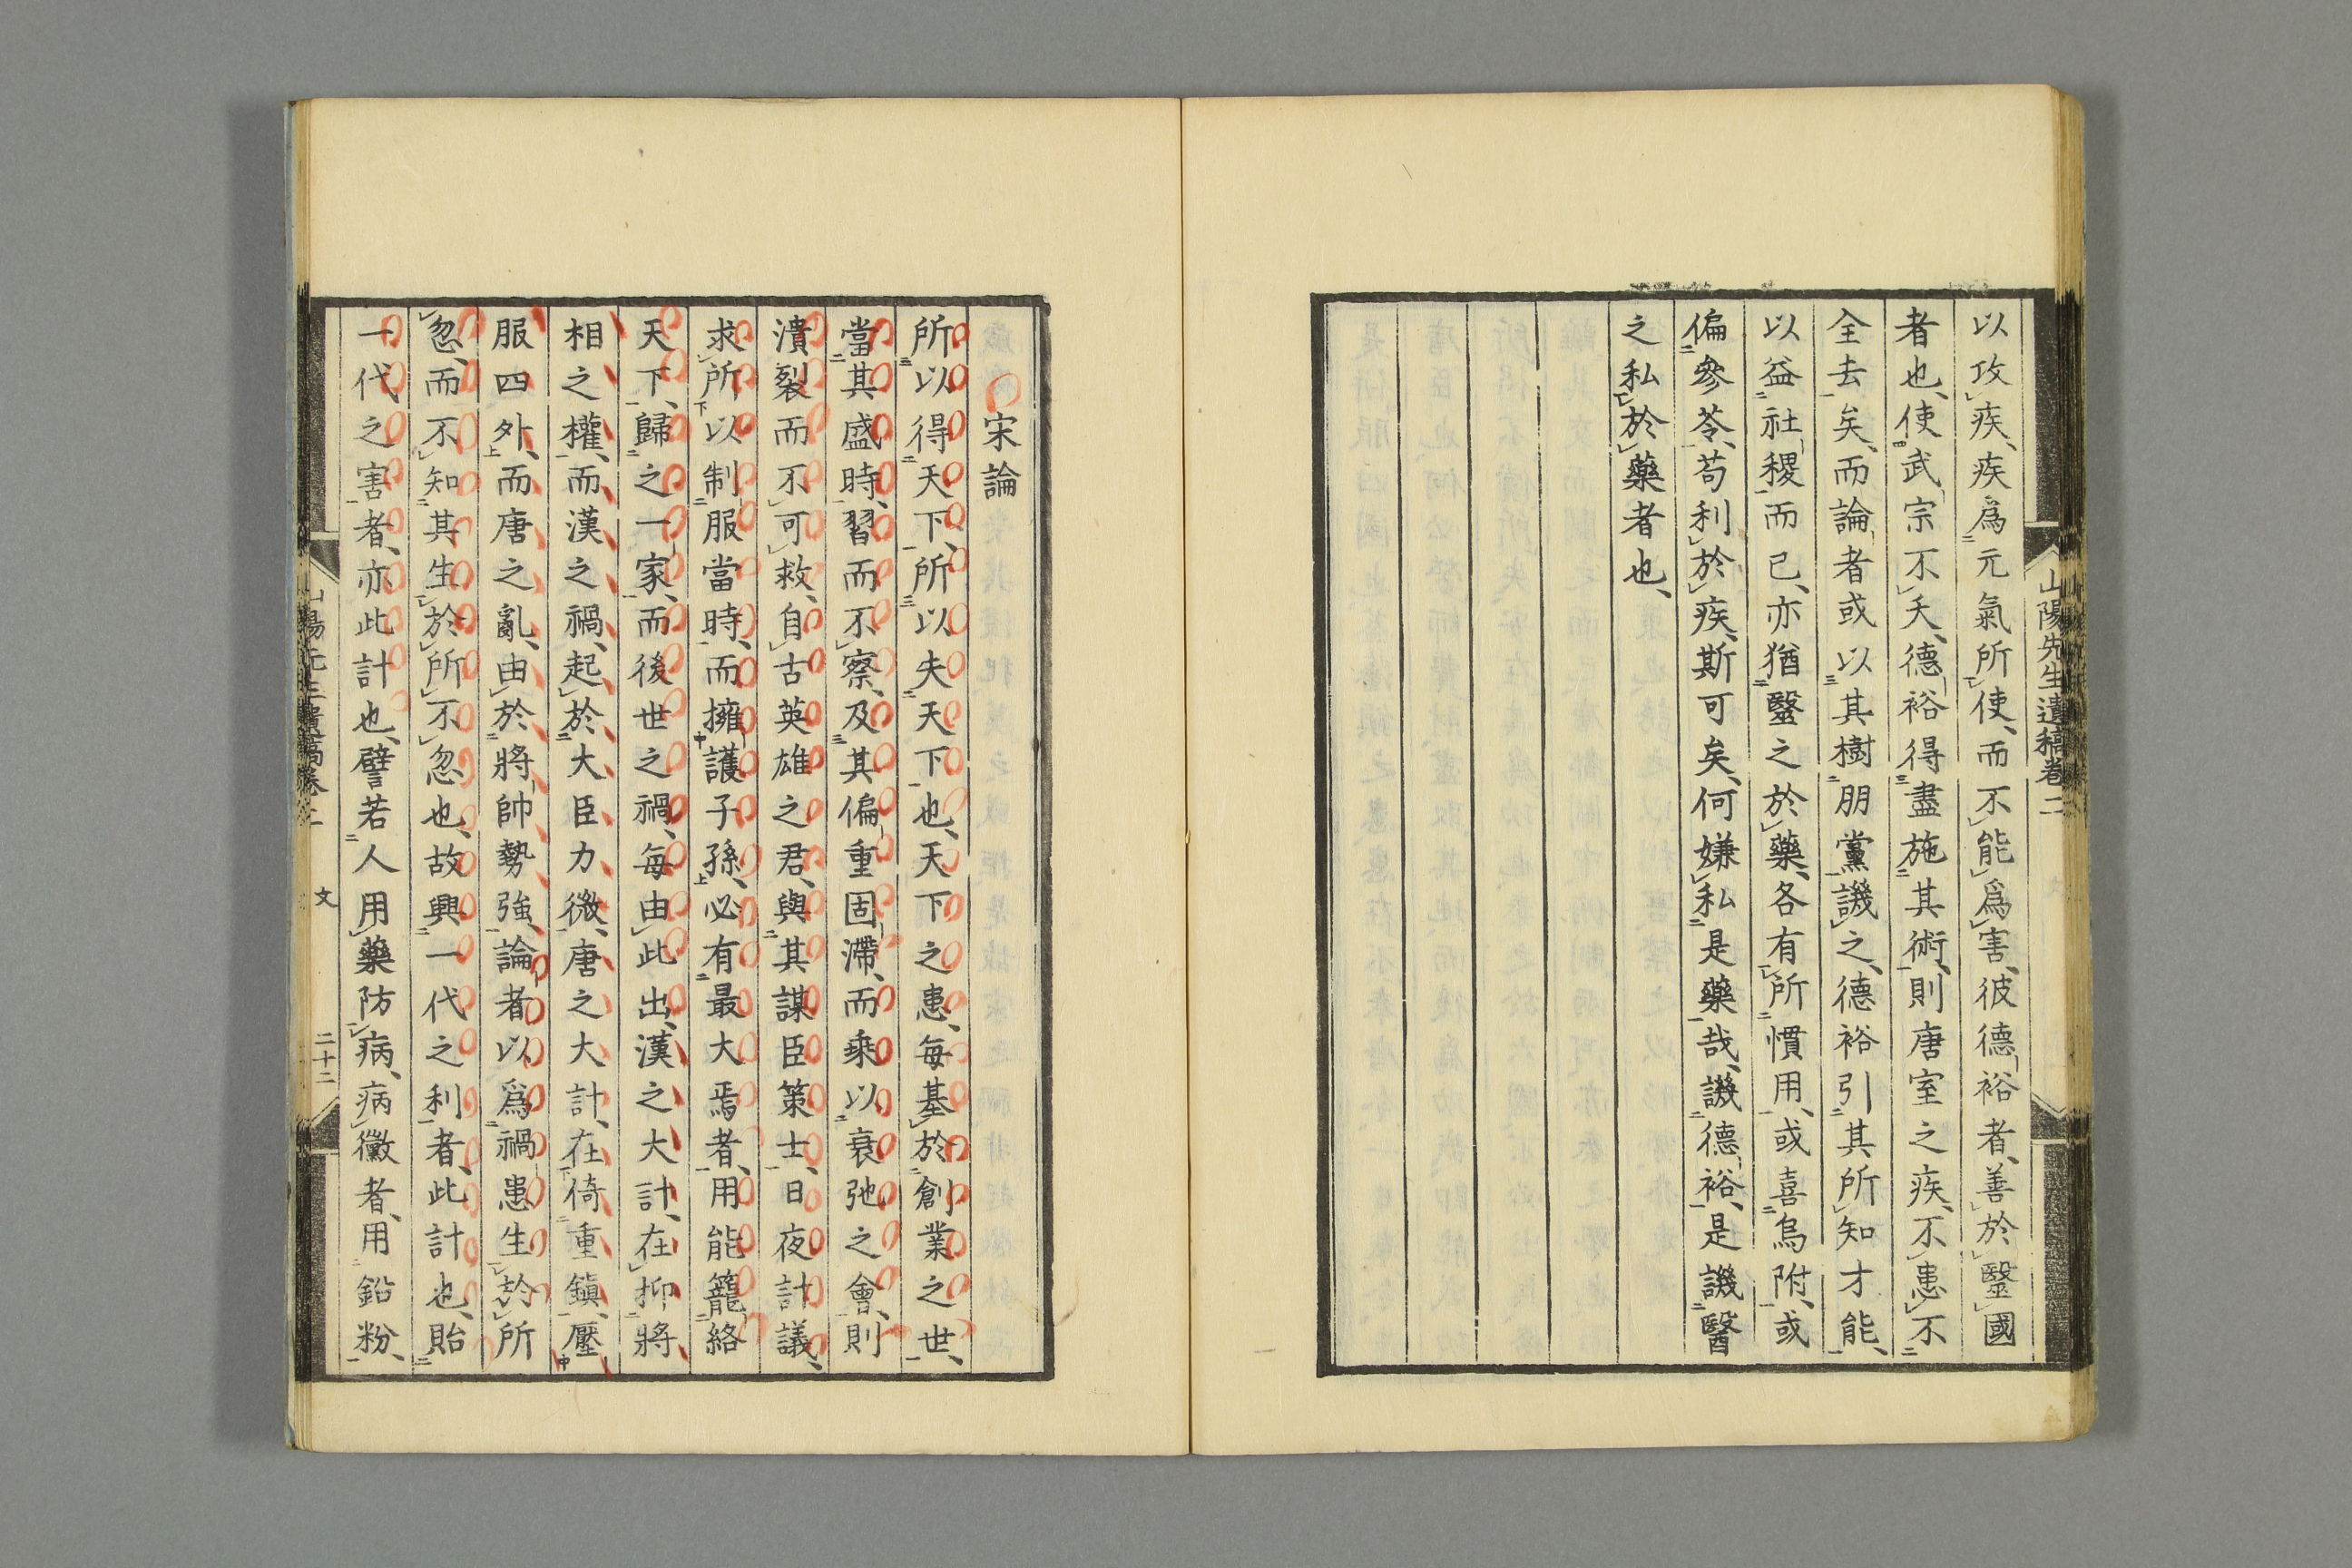 山陽先生遺稿卷二
以攻疾、疾爲元氣所使、而不能爲害、彼德裕者、善於毉國
者也、使武宗不夭、德裕得盡施其術、則唐室之疾、不患不
全去矣、而論者或以其樹朋黨譏之、德裕引其所知才能、
以益社稷而已、亦猶毉之於藥、各有所慣用、或喜烏附、或
偏參苓、苟利於疾、斯可矣、何嫌私是藥哉、譏德裕、是譏醫
之私於藥者也、
宋論
所以得天下、所以失天下也、天下之患、每基於創業之世、
當其盛時、習而不察、及其偏重固滯、而乘以衰弛之會、則
潰裂而不可救、自古英雄之君、與其謀臣策士、日夜計議、
求所以制服當時、而擁護子孫、必有最大焉者、用能籠絡
天下、歸之一家、而後世之禍、每由此出、漢之大計、在抑將
相之權、而漢之禍、起於大臣力微、唐之大計、在倚重鎭壓
服四外、而唐之亂、由於將帥勢強、論者以爲禍患生於所
忽、而不知其生於所不忽也、故興一代之利者、此計也、貽
一代之害者、亦此計也、譬若人用藥防病、病黴者、用鉛粉、
山陽先生遺稿卷二
文
二十二